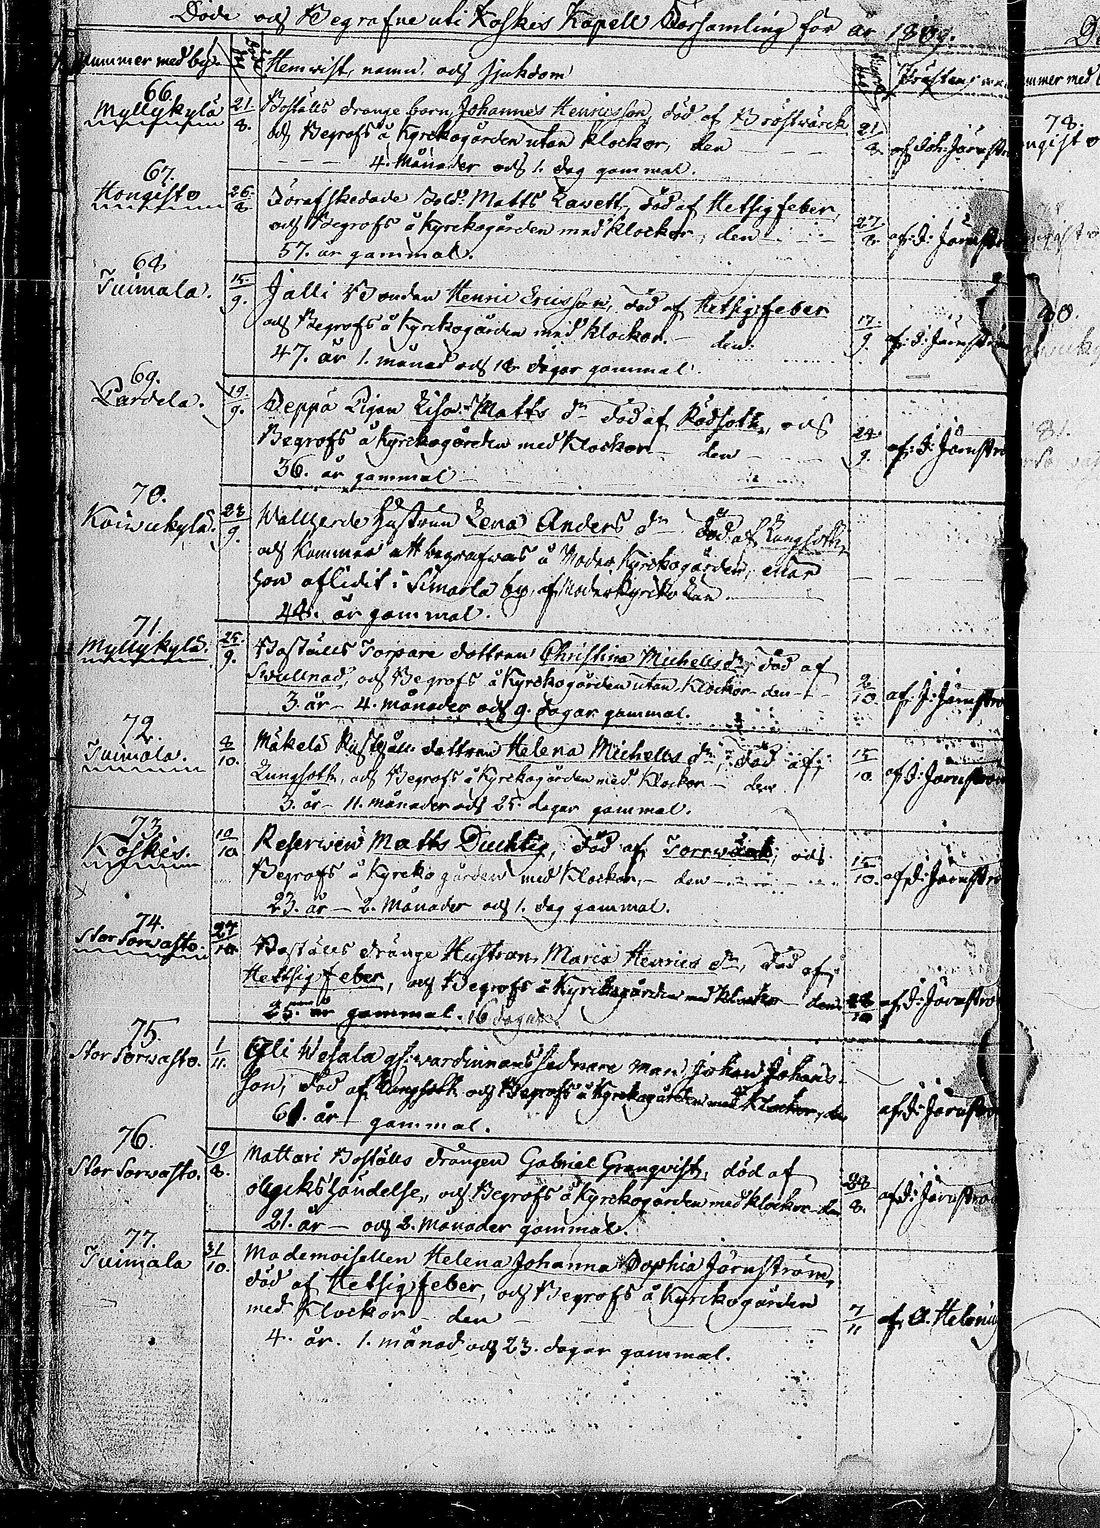 Döde och Begrafne uti Koskis Kapell Församling för år 1809.
Nummer med by. Hemvist, namn, och sjukdom
66.
Myllykylä 21/8. Boställs drängebarn Johannes Henricsson, död af Bröstwärck
och Begrofs å Kyrckogården utan klockor, den 21/8. af Joh: Järnström
4. Månader och 1. dag gammal.
67.
Hongisto 26/8 Förafskedade Sold: Matts Lavett, död af Hetsigfeber,
och Begrofs å Kyrckogården med klockor, den 27/8. af J: Järnström
57. år gammal.
68.
Tuimala. 15/9. Jälli Bonden Henric Ericsson, död af Hetsigfeber
och Begrofs å Kyrckogården med klockor. den 17/9. af J: Järnström
47. år 1. månad och 18 dagar gammal.
69.
Pardela. 19/9. Seppä Pigan Lisa Matts dr död af Rödsoth, och
Begrofs å Kyrckogården med Klockor den 24/9. af J: Järnström
36. år gammal
70.
Koiwukylä. 23/9. Hustrun Lena Anders dr död af Lungsoth,
och Kommer att begrafwas å Moder Kyrckogården, efter
hon aflidit i Simarla by, af Moderkyrcko
44. år gammal.
71.
Myllykylä. 25/9. Boställs Torpare dottren Christina Michells dr, död af
Swullnad, och Begrofs å Kyrckogården utan Klockor den 2/10. af J: Järnström
3. år 4. månader och 9. dagar gammal.
72.
Tuimala. 8/10. Mäkelä Rusthåll. dottren Helena Michells dr, död af
Lungsoth, och Begrofs å Kyrckogården med Klockor den 15/10. af J: Järnström
3. år 11. månader och 25. dagar gammal.
73.
Koskis. 10/10 Reserwen Matts Ducktig, död af Torrwärk, och
Begrofs å Kyrckogården med Klockor, den 15/10. af J: Järnström
23. år 2. Månader och 1. dag gammal.
74.
Stor Sorvasto. 27/10 Boställs drängs Hustrun Maria Henrics dr, död af
Hettsig feber, och Begrofs å Kyrckogården med klockor den 28/10 af J: Järnström
25. år gammal. 16 dagar
75.
Stor Sorvasto. 1/11. Ylli Wesala gl: wardinnans sednare man Johan Johans-
son, död af Lungsoth och Begrofs å Kyrckogården med Klockor, den af J: Järnström
61. år gammal.
76.
Stor Sorvasto. 19/8. Mattari Boställs drängen Gabriel Granqvist, död af
olyckshändelse, och Begrofs å Kyrckogården med klockor den 23/8. af J: Järnström
21. år och 2. Månader gammal.
77.
Tuimala 31/10. Mademoisellen Helena Johanna Sophia Järnström,
död af Hetsig feber, och Begrofs å Kyrckogården
med Klockor den 7/11 af A. Helenius
4. år. 1. månad och 23. dagar gammal.
78.